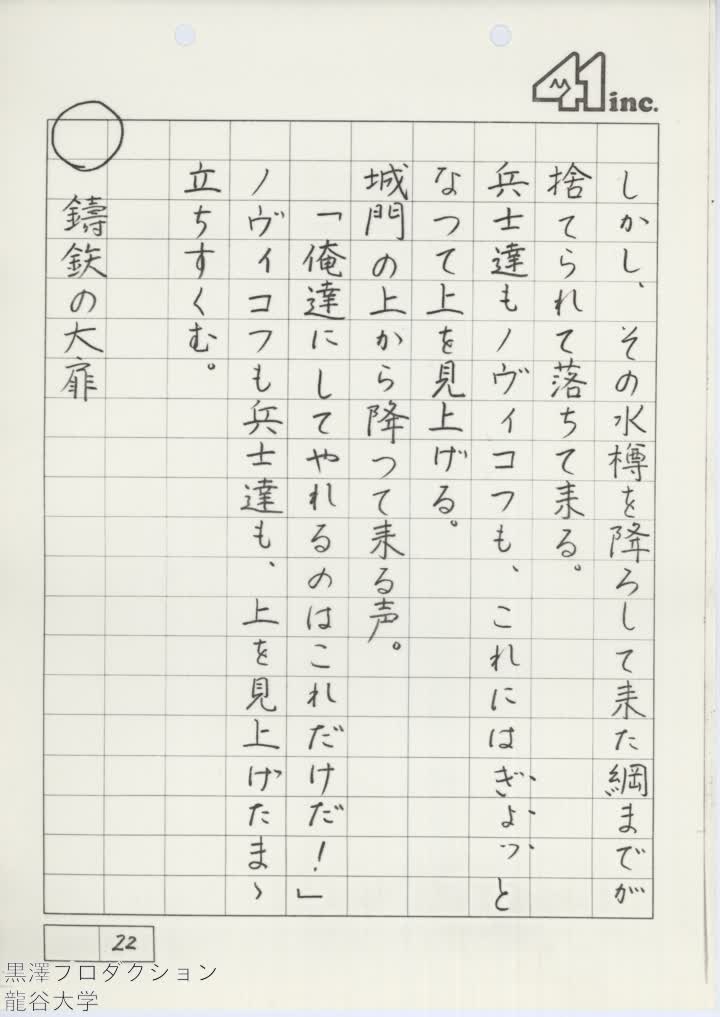 41 inc.
しかし、その水樽を降ろして来た綱までが
捨てられて落ちて来る。
兵士達もノヴィコフも、これにはぎょっと
なって上を見上げる。
城門の上から降って来る声。
「俺達にしてやれるのはこれだけだ！」
ノヴィコフも兵士達も、上を見上げたまゝ
立ちすくむ。
○
鋳鉄の大扉
22
黒澤プロダクション
龍谷大学